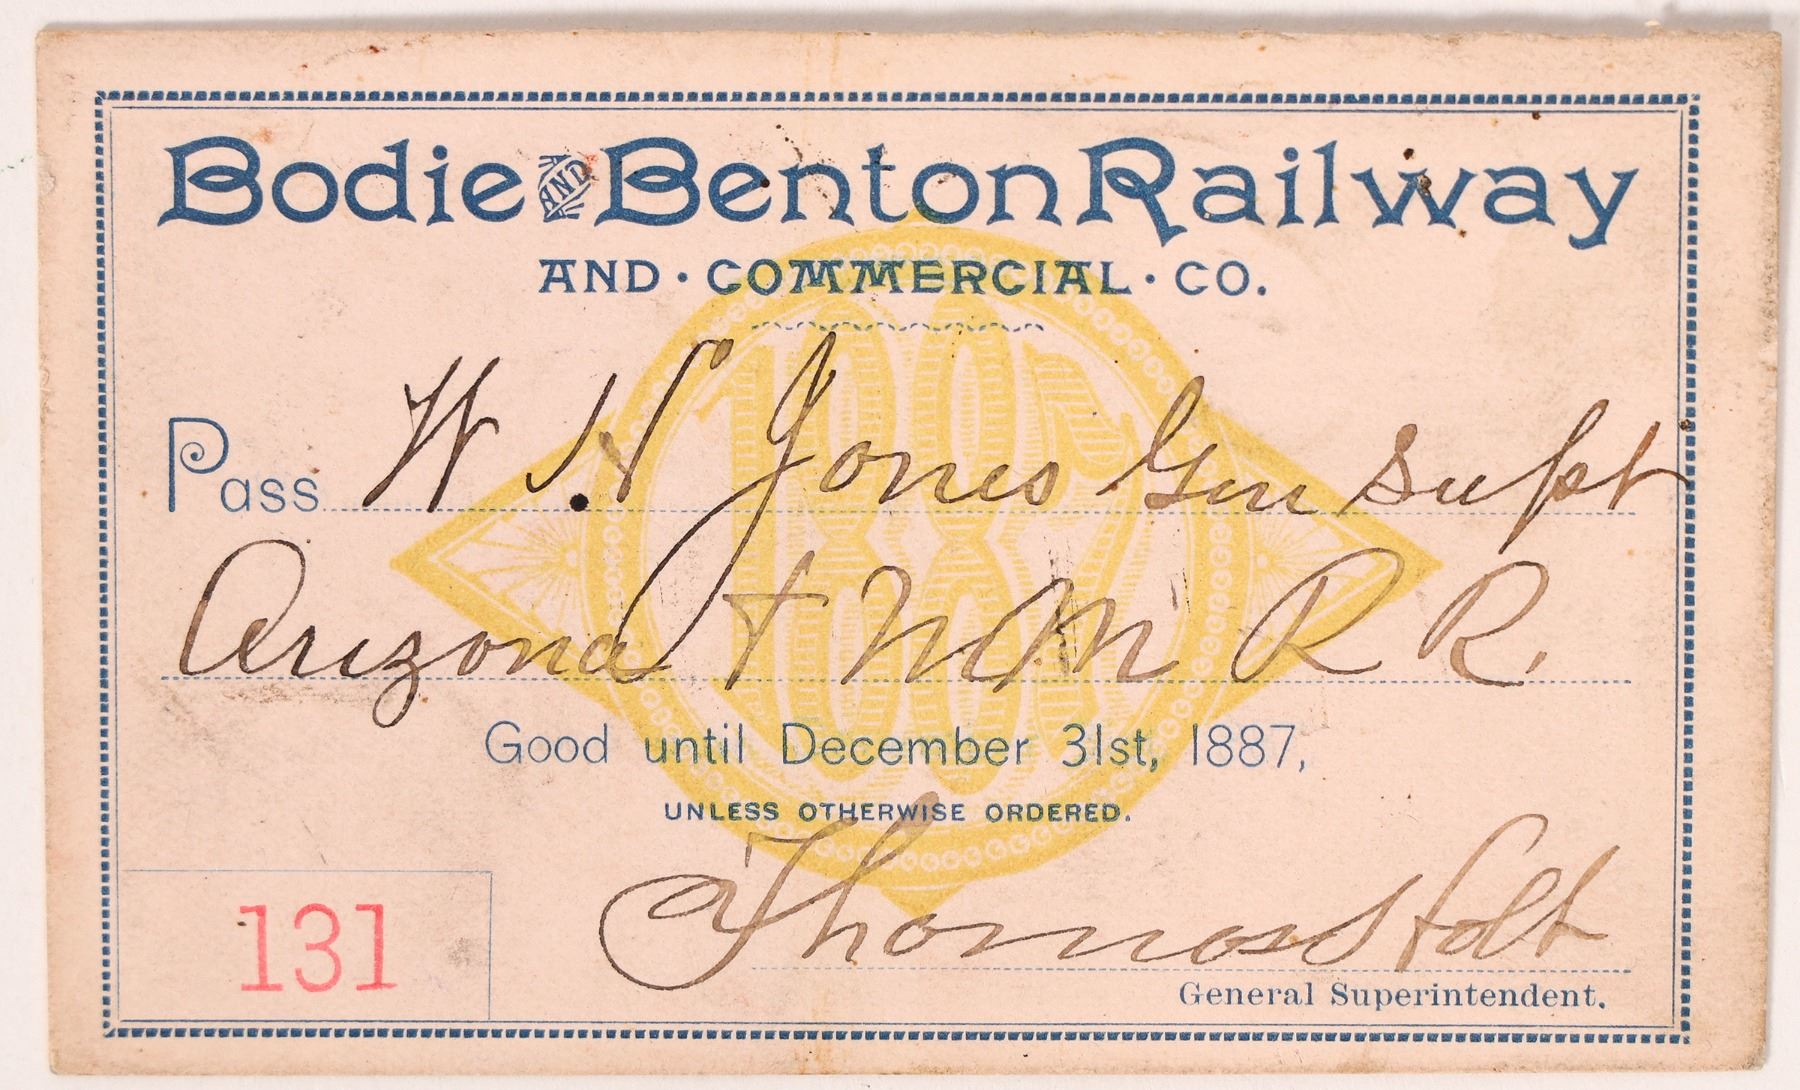 Bodie AND Benton Railway
AND · COMMERCIAL · CO.
1887
Pass W. N Jones Gen Supt
Arizona & N M R R.
Good until December 31st, 1887,
UNLESS OTHERWISE ORDERED.
131
Thomas Holt
General Superintendent.